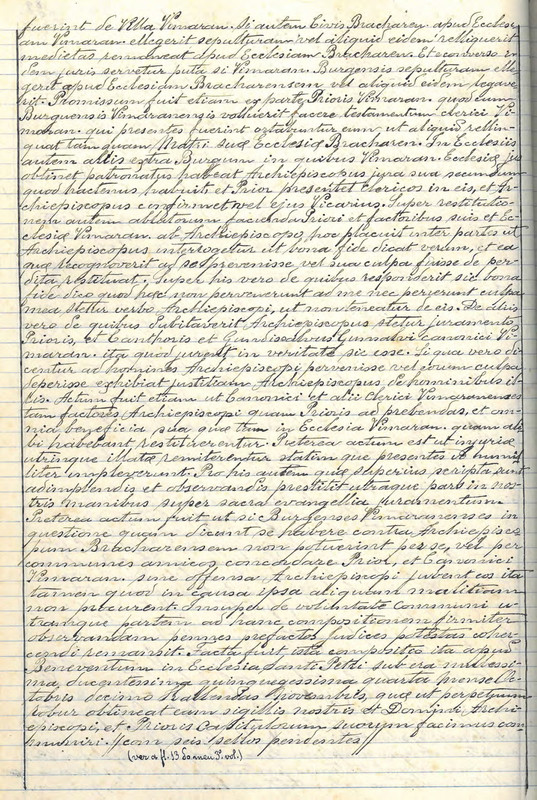 fuerint de Villa Vimaran. Si autem Civis Bracharen. apud Ecclesi-
am Vimaran. ellegerit sepulturam vel aliquid eidem relliquerit
medietas remaneat apud Ecclesiam Bracharen. Et econverso i-
dem juris servetur puta si Vimaran. Burgensis sepulturam elle-
gerit apud Ecclesiam Bracharensem vel aliquid eidem legave-
rit. Promissum fuit etiam ex parte Prioris Vimaran. quod cum
Burguensis Vimaranensis voluerit facere testamentum clerici Vi-
maran. qui presentes fuerint ortabuntur eum ut aliquid rellin-
quat tamquam Matri suæ Ecclesiæ Bracharen. In Ecclesiis
autem aliis extra Burgum in quibus Vimaran. Ecclesia jus
obtinet patronatus habeat Archiepiscopus jura sua secundum
quod hactenus habuit et Prior presentet clericos in eis, et Ar-
chiepiscopus confirmet vel ejus Vicarius. Super restitutio-
nem autem ablatorum facienda Priori et factoribus suis et Ec-
clesiæ Vimaran. ab Archiepiscopo, hoc placuit inter partes ut
Archiepiscopus interrogetur ut bona fide dicat verum, et ea
quæ recognoverit ad se pervenisse vel sua culpa fuisse de per-
dita restituat. Super his vero de quibus responderit sic bona
fide dico quod hæc non pervenerunt ad me nec perierunt culpa
mea stetur verbo Archiepiscopi, ut non teneatur de eis. De aliis
vero de quibus dubitaverit Archiepiscopus stetur juramento
Prioris, et Canthoris et Gundisalvus Gunsalvi canonici Vi-
maran. ita quod jurent in veritate sic esse. Si qua vero di-
centur ad homines Archiepiscopi pervenisse vel eorum culpa
deperisse exhibiat justitiam Archiepiscopus de hominibus il-
lis. Actum fuit etiam ut Canonici et alii Clerici Vimaranenses
tam factores Archiepiscopi quam Prioris ad prebendas, et om-
nia beneficia sua quæ tum in Ecclesia Vimaran. quam ali-
bi habebant restituerentur. Preterea actum est ut injuriæ
utrinque illatæ remiterentur statim que presentes et humi-
liter impleverunt. Pro his autem quæ superius scripta sunt
adimplendis et observandis prestitit utraque pars in nos-
tris manibus super sacra evangellia juramentum.
Preterea actum fuit ut si Burgenses Vimaranenses in
questione quam dicunt se habere contra Archiepisco-
pum Bracharensem non potuerint per se, vel per
communes amicos concordare Prior, et Canonici
Vimaran. sine offensa Archiepiscopi juvent eos ita
tamen quod in causa ipsa aliquam malitiam
non procurent. Insuper de voluntate communi u-
tramque partem ad hanc compositionem firmiter
observandam pennes prefactos judices potestas coher-
cendi remansit. Facta fuit ista compositio ita apud
Beneventum in Ecclesia Sancti Petri sub era millessi-
ma, ducentessima quinquegessima quarta mense Oc-
tobris decimo Kallendas Novembris, quæ ut perpetuum
robur obtineat eam sigillis nostris et Domini Archi-
episcopi, et Prioris Capitulorum suorum facimus com-
muniri. // com seis sellos pendentes //
(ver a fl. 13 do meu 3º vol.)